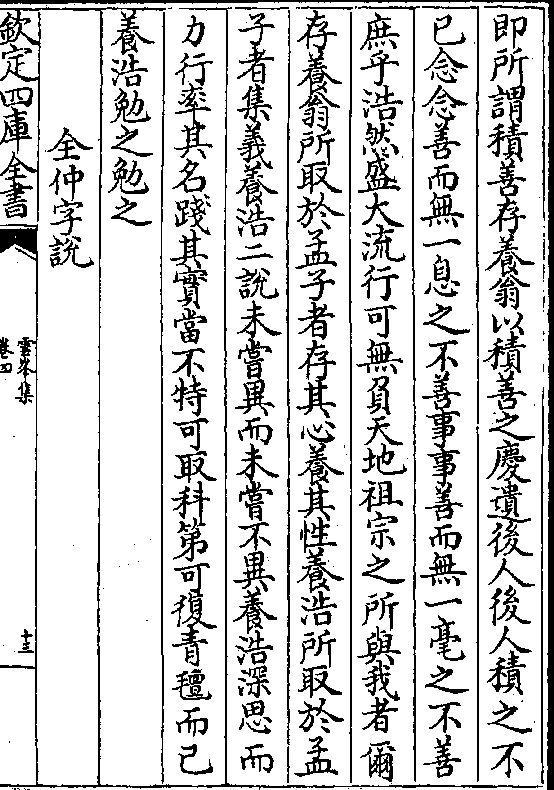 即所謂積善存養翁以積善之慶遺後人後人積之不
已念念善而無一息之不善事事善而無一毫之不善
庶乎浩然盛大流行可無負天地祖宗之所與我者爾
存養翁所取於孟子者存其心養其性養浩所取於孟
子者集義養浩二說未嘗異而未嘗不異養浩深思而
力行率其名踐其實當不特可取科第可復青氊而已
養浩勉之勉之
全仲字說
欽定四庫全書
雲峯集
卷四
十三